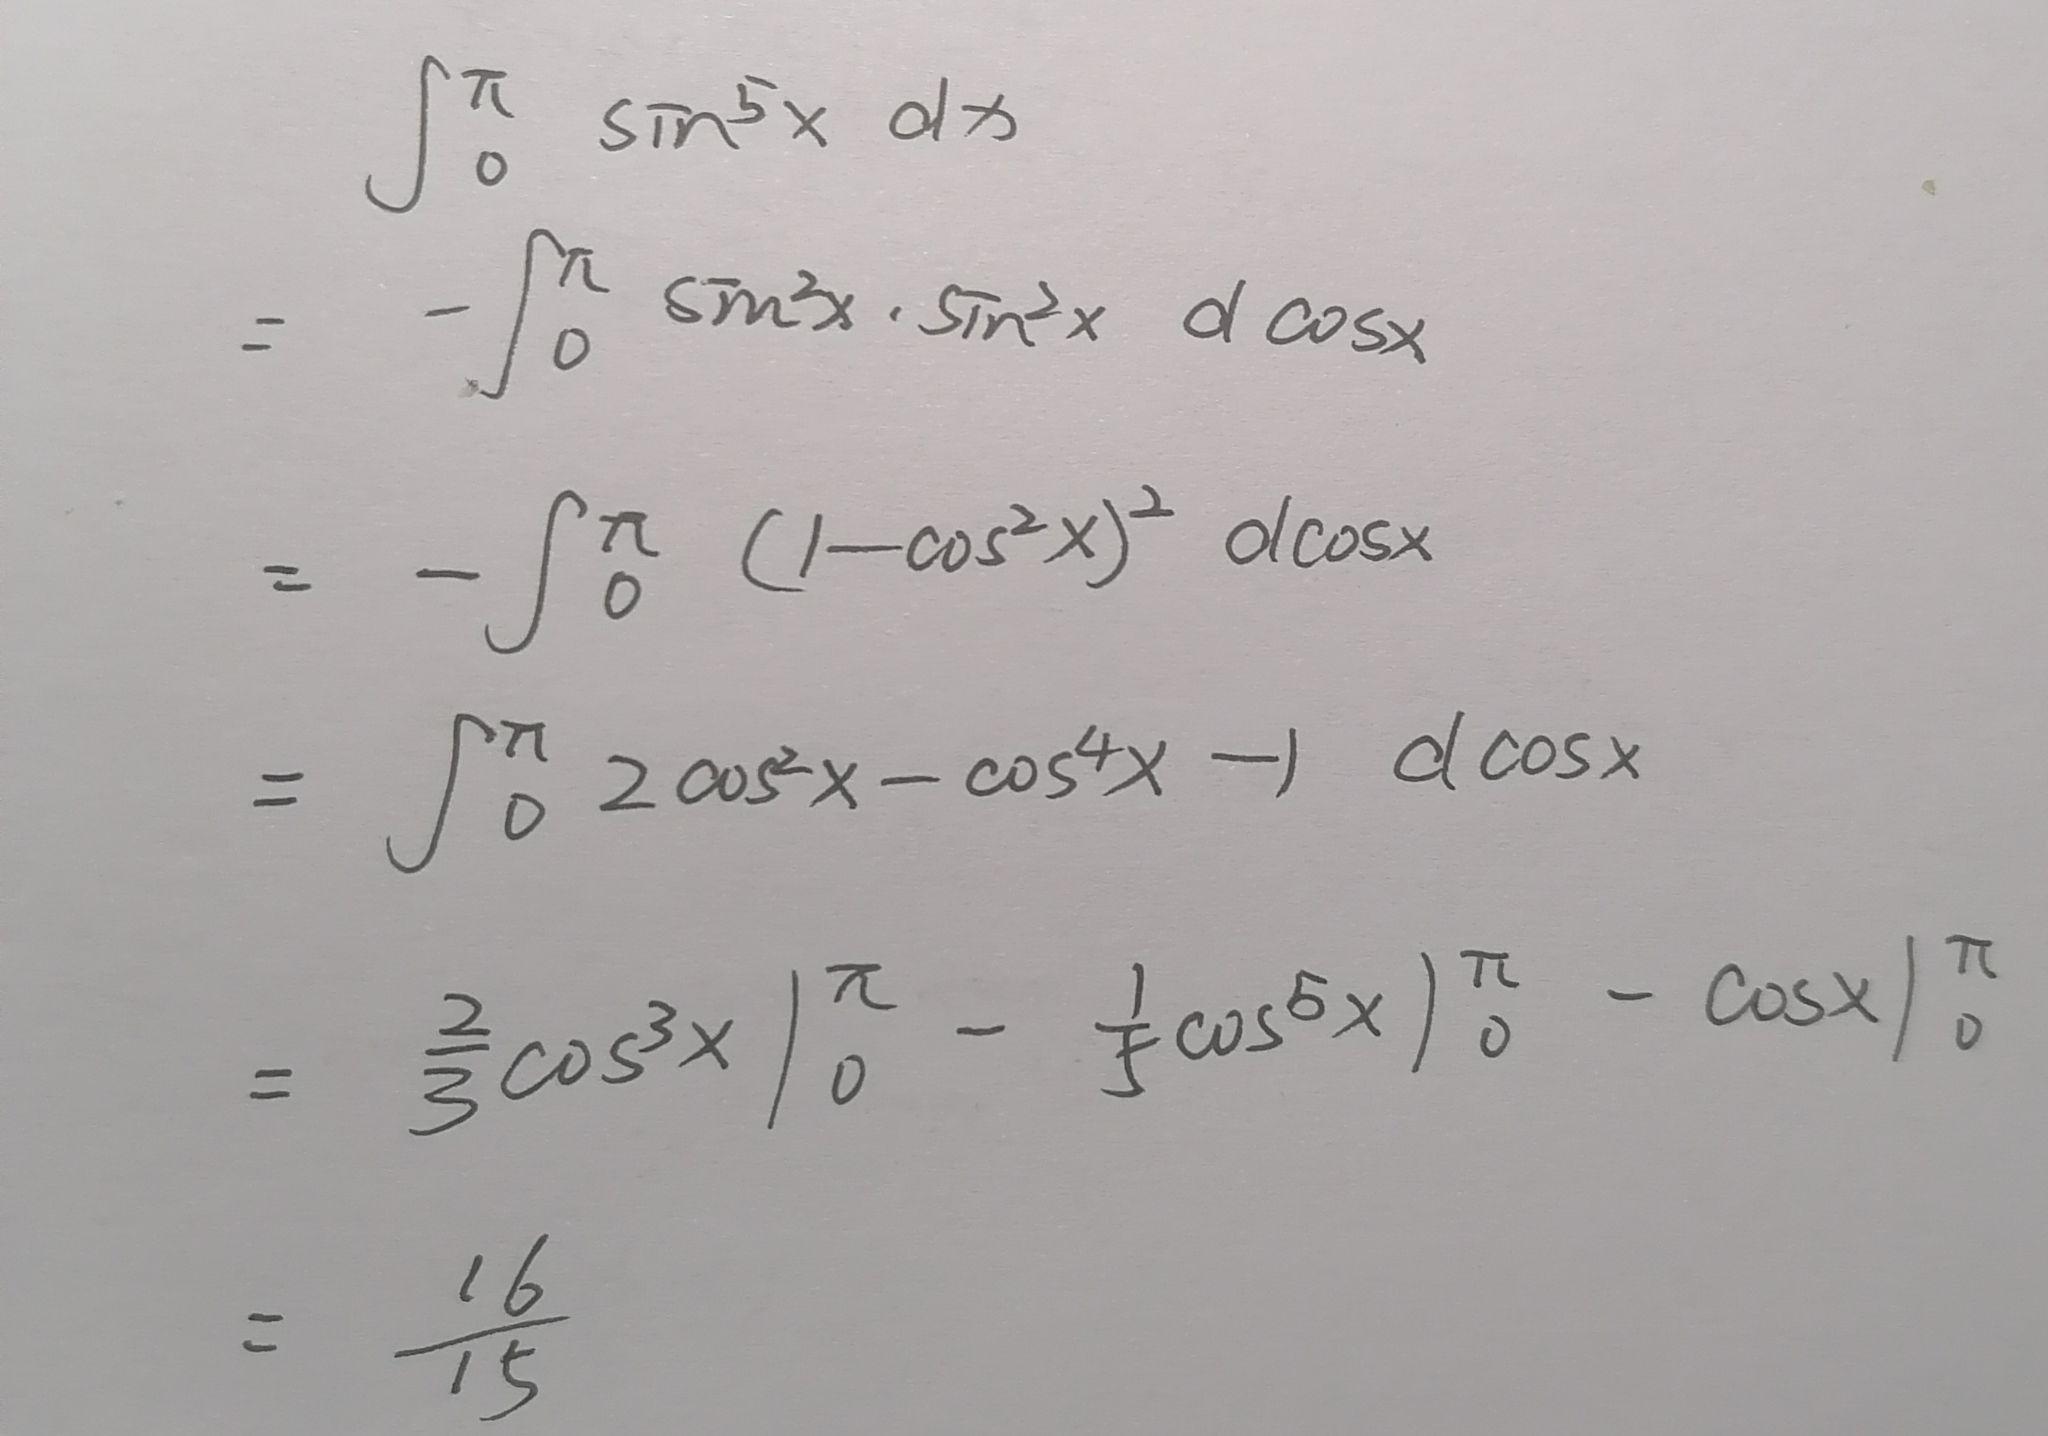 ∫₀^π sin⁵x dx
= -∫₀^π sin²x · sin²x d cosx
= -∫₀^π (1-cos²x)² dcosx
= ∫₀^π 2cos²x - cos⁴x - 1 d cosx
= 2/3 cos³x |₀^π - 1/5 cos⁵x |₀^π - cosx |₀^π
= 16/15